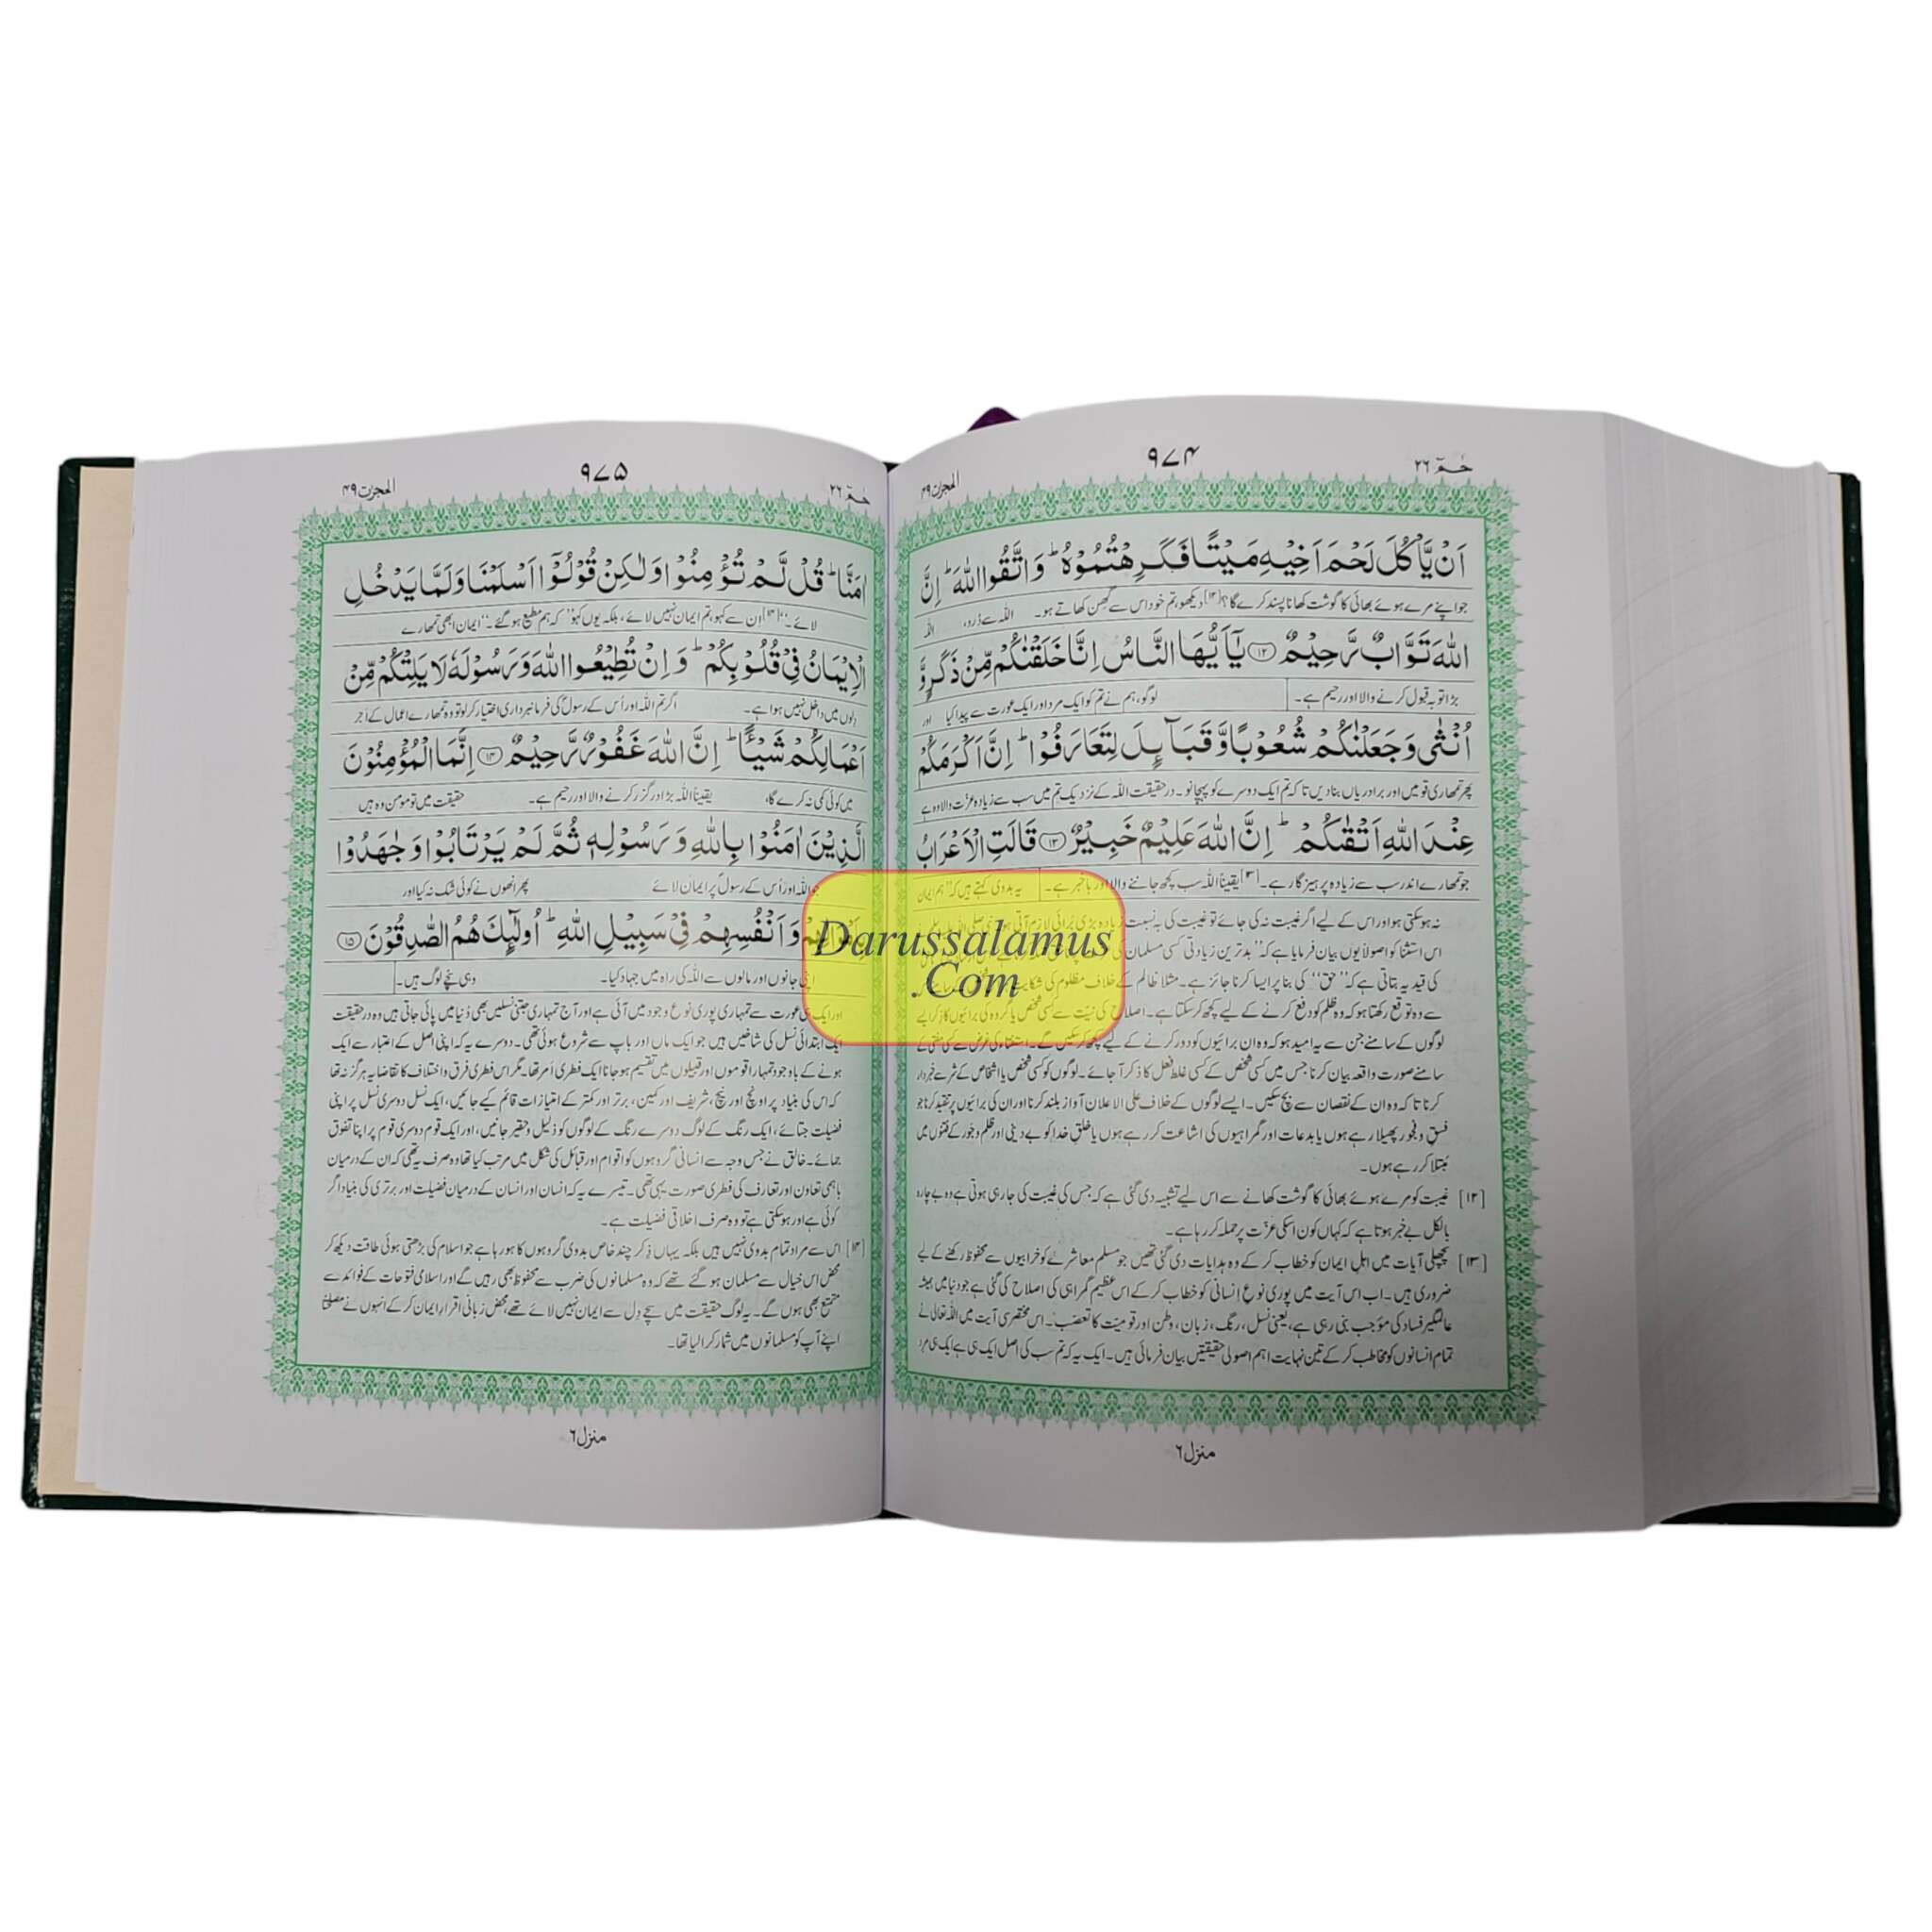 حٰمٓ ٢٦
٩٧۴
الحجرٰت ۴٩
اَنْ یَّاْكُلَ لَحْمَ اَخِیْهِ مَیْتًا فَكَرِهْتُمُوْهُ ؕ وَ اتَّقُوا اللّٰهَ ؕ اِنَّ
جو اپنے مرے ہوئے بھائی کا گوشت کھانا پسند کرے گا؟[۱۲] دیکھو، تم خود اس سے گھن کھاتے ہو۔ اللہ سے ڈرو، اللہ
اللّٰهَ تَوَّابٌ رَّحِیْمٌ ﴿۱۲﴾ یٰۤاَیُّهَا النَّاسُ اِنَّا خَلَقْنٰكُمْ مِّنْ ذَكَرٍ وَّ
بڑا توبہ قبول کرنے والا اور رحیم ہے۔ لوگو، ہم نے تم کو ایک مرد اور ایک عورت سے پیدا کیا اور
اُنْثٰی وَ جَعَلْنٰكُمْ شُعُوْبًا وَّ قَبَآىِٕلَ لِتَعَارَفُوْا ؕ اِنَّ اَكْرَمَكُمْ
پھر تمھاری قومیں اور برادریاں بنا دیں تاکہ تم ایک دوسرے کو پہچانو۔ درحقیقت اللہ کے نزدیک تم میں سب سے زیادہ عزت والا وہ ہے
عِنْدَ اللّٰهِ اَتْقٰىكُمْ ؕ اِنَّ اللّٰهَ عَلِیْمٌ خَبِیْرٌ ﴿۱۳﴾ قَالَتِ الْاَعْرَابُ
جو تمھارے اندر سب سے زیادہ پرہیز گار ہے۔[۱۳] یقیناً اللہ سب کچھ جاننے والا اور باخبر ہے۔ یہ بدوی کہتے ہیں کہ "ہم ایمان
نہ ہو سکتی ہو اور اس کے لیے اگر غیبت نہ کی جائے تو غیبت کی بہ نسبت زیادہ بڑی بُرائی لازم آتی ہو
اس استثنا کو اصولاً یوں بیان فرمایا ہے کہ "بدترین زیادتی کسی مسلمان کی
کی قید یہ بتاتی ہے کہ "حق" کی بنا پر ایسا کرنا جائز ہے۔ مثلاً ظالم کے خلاف مظلوم کی شکایت
سے وہ توقع رکھتا ہو کہ وہ ظلم کو دفع کرنے کے لیے کچھ کر سکتا ہے۔ اصلاح کی نیت سے کسی شخص یا گروہ کی برائیوں کا ذکر ایسے
لوگوں کے سامنے جن سے یہ امید ہو کہ وہ ان برائیوں کو دور کرنے کے لیے کچھ کر سکیں گے۔ استفتاء کی غرض سے کسی مفتی کے
سامنے صورت واقعہ بیان کرنا جس میں کسی شخص کے کسی غلط فعل کا ذکر آ جائے۔ لوگوں کو کسی شخص یا اشخاص کے شر سے خبردار
کرنا تاکہ وہ ان کے نقصان سے بچ سکیں۔ ایسے لوگوں کے خلاف علی الاعلان آواز بلند کرنا اور ان کی برائیوں پر تنقید کرنا جو
فسق و فجور پھیلا رہے ہوں یا بدعات اور گمراہیوں کی اشاعت کر رہے ہوں یا خلقِ خدا کو بے دینی اور ظلم و جور کے فتنوں میں
مُبتلا کر رہے ہوں۔
[۱۲] غیبت کو مرے ہوئے بھائی کا گوشت کھانے سے اس لیے تشبیہ دی گئی ہے کہ جس کی غیبت کی جا رہی ہوتی ہے وہ بے چارہ
بالکل بے خبر ہوتا ہے کہ کہاں کون اسکی عزّت پر حملہ کر رہا ہے۔
[۱۳] پچھلی آیات میں اہلِ ایمان کو خطاب کر کے وہ ہدایات دی گئی تھیں جو مسلم معاشرے کو خرابیوں سے محفوظ رکھنے کے لیے
ضروری ہیں۔ اب اس آیت میں پوری نوعِ انسانی کو خطاب کر کے اس عظیم گمراہی کی اصلاح کی گئی ہے جو دنیا میں ہمیشہ
عالمگیر فساد کی موجب بنی رہی ہے، یعنی نسل، رنگ، زبان، وطن اور قومیّت کا تعصّب۔ اس مختصر سی آیت میں اللہ تعالیٰ نے
تمام انسانوں کو مخاطب کر کے تین نہایت اہم اصولی حقیقتیں بیان فرمائی ہیں۔ ایک یہ کہ تم سب کی اصل ایک ہی ہے ایک ہی مرد
منزل ٦
حٰمٓ ٢٦
٩٧۵
الحجرٰت ۴٩
اٰمَنَّا ؕ قُلْ لَّمْ تُؤْمِنُوْا وَ لٰكِنْ قُوْلُوْۤا اَسْلَمْنَا وَ لَمَّا یَدْخُلِ
لائے۔"[۱۴] اِن سے کہو، تم ایمان نہیں لائے، بلکہ یوں کہو "کہ ہم مطیع ہو گئے۔" ایمان ابھی تمھارے
الْاِیْمَانُ فِیْ قُلُوْبِكُمْ ؕ وَ اِنْ تُطِیْعُوا اللّٰهَ وَ رَسُوْلَهٗ لَا یَلِتْكُمْ مِّنْ
دِلوں میں داخل نہیں ہوا ہے۔ اگر تم اللہ اور اُس کے رسولؐ کی فرمانبرداری اختیار کر لو تو وہ تمھارے اعمال کے اجر
اَعْمَالِكُمْ شَیْـًٔا ؕ اِنَّ اللّٰهَ غَفُوْرٌ رَّحِیْمٌ ﴿۱۴﴾ اِنَّمَا الْمُؤْمِنُوْنَ
میں کوئی کمی نہ کرے گا، یقیناً اللہ بڑا درگزر کرنے والا اور رحیم ہے۔ حقیقت میں تو مومن وہ ہیں
الَّذِیْنَ اٰمَنُوْا بِاللّٰهِ وَ رَسُوْلِهٖ ثُمَّ لَمْ یَرْتَابُوْا وَ جٰهَدُوْا
جو اللہ اور اُس کے رسولؐ پر ایمان لائے پھر انھوں نے کوئی شک نہ کیا اور
بِاَمْوَالِهِمْ وَ اَنْفُسِهِمْ فِیْ سَبِیْلِ اللّٰهِ ؕ اُولٰٓىِٕكَ هُمُ الصّٰدِقُوْنَ ﴿۱۵﴾
اپنی جانوں اور مالوں سے اللہ کی راہ میں جہاد کیا۔ وہی سچے لوگ ہیں۔
اور ایک ہی عورت سے تمہاری پوری نوع وجود میں آئی ہے اور آج تمہاری جتنی نسلیں بھی دُنیا میں پائی جاتی ہیں وہ درحقیقت
ایک ابتدائی نسل کی شاخیں ہیں جو ایک ماں اور باپ سے شروع ہوئی تھی۔ دوسرے یہ کہ اپنی اصل کے اعتبار سے ایک
ہونے کے باوجود تمہارا قوموں اور قبیلوں میں تقسیم ہو جانا ایک فطری اَمر تھا۔ مگر اس فطری فرق و اختلاف کا تقاضا یہ ہرگز نہ تھا
کہ اس کی بنیاد پر اونچ اور نیچ، شریف اور کمین، برتر اور کمتر کے امتیازات قائم کیے جائیں، ایک نسل دوسری نسل پر اپنی
فضیلت جتائے، ایک رنگ کے لوگ دوسرے رنگ کے لوگوں کو ذلیل و حقیر جانیں، اور ایک قوم دوسری قوم پر اپنا تفوق
جمائے۔ خالق نے جس وجہ سے انسانی گروہوں کو اقوام اور قبائل کی شکل میں مرتب کیا تھا وہ صرف یہ تھی کہ ان کے درمیان
باہمی تعاون اور تعارف کی فطری صورت یہی تھی۔ تیسرے یہ کہ انسان اور انسان کے درمیان فضیلت اور برتری کی بنیاد اگر
کوئی ہے اور ہو سکتی ہے تو وہ صرف اخلاقی فضیلت ہے۔
[۱۴] اس سے مراد تمام بدوی نہیں ہیں بلکہ یہاں ذکر چند خاص بدوی گروہوں کا ہو رہا ہے جو اسلام کی بڑھتی ہوئی طاقت دیکھ کر
محض اس خیال سے مسلمان ہو گئے تھے کہ وہ مسلمانوں کی ضرب سے محفوظ بھی رہیں گے اور اسلامی فتوحات کے فوائد سے
متمتع بھی ہوں گے۔ یہ لوگ حقیقت میں سچے دِل سے ایمان نہیں لائے تھے، محض زبانی اقرارِ ایمان کر کے انہوں نے مصلحتاً
اپنے آپ کو مسلمانوں میں شمار کرا لیا تھا۔
منزل ٦
Darussalamus
.Com